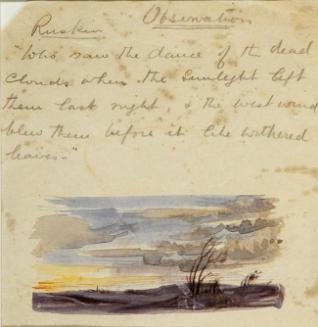 Observation
Ruskin
"Who saw the dance of the dead
clouds when the sunlight left
them last night, & the west wind
blew them before it like withered
leaves."